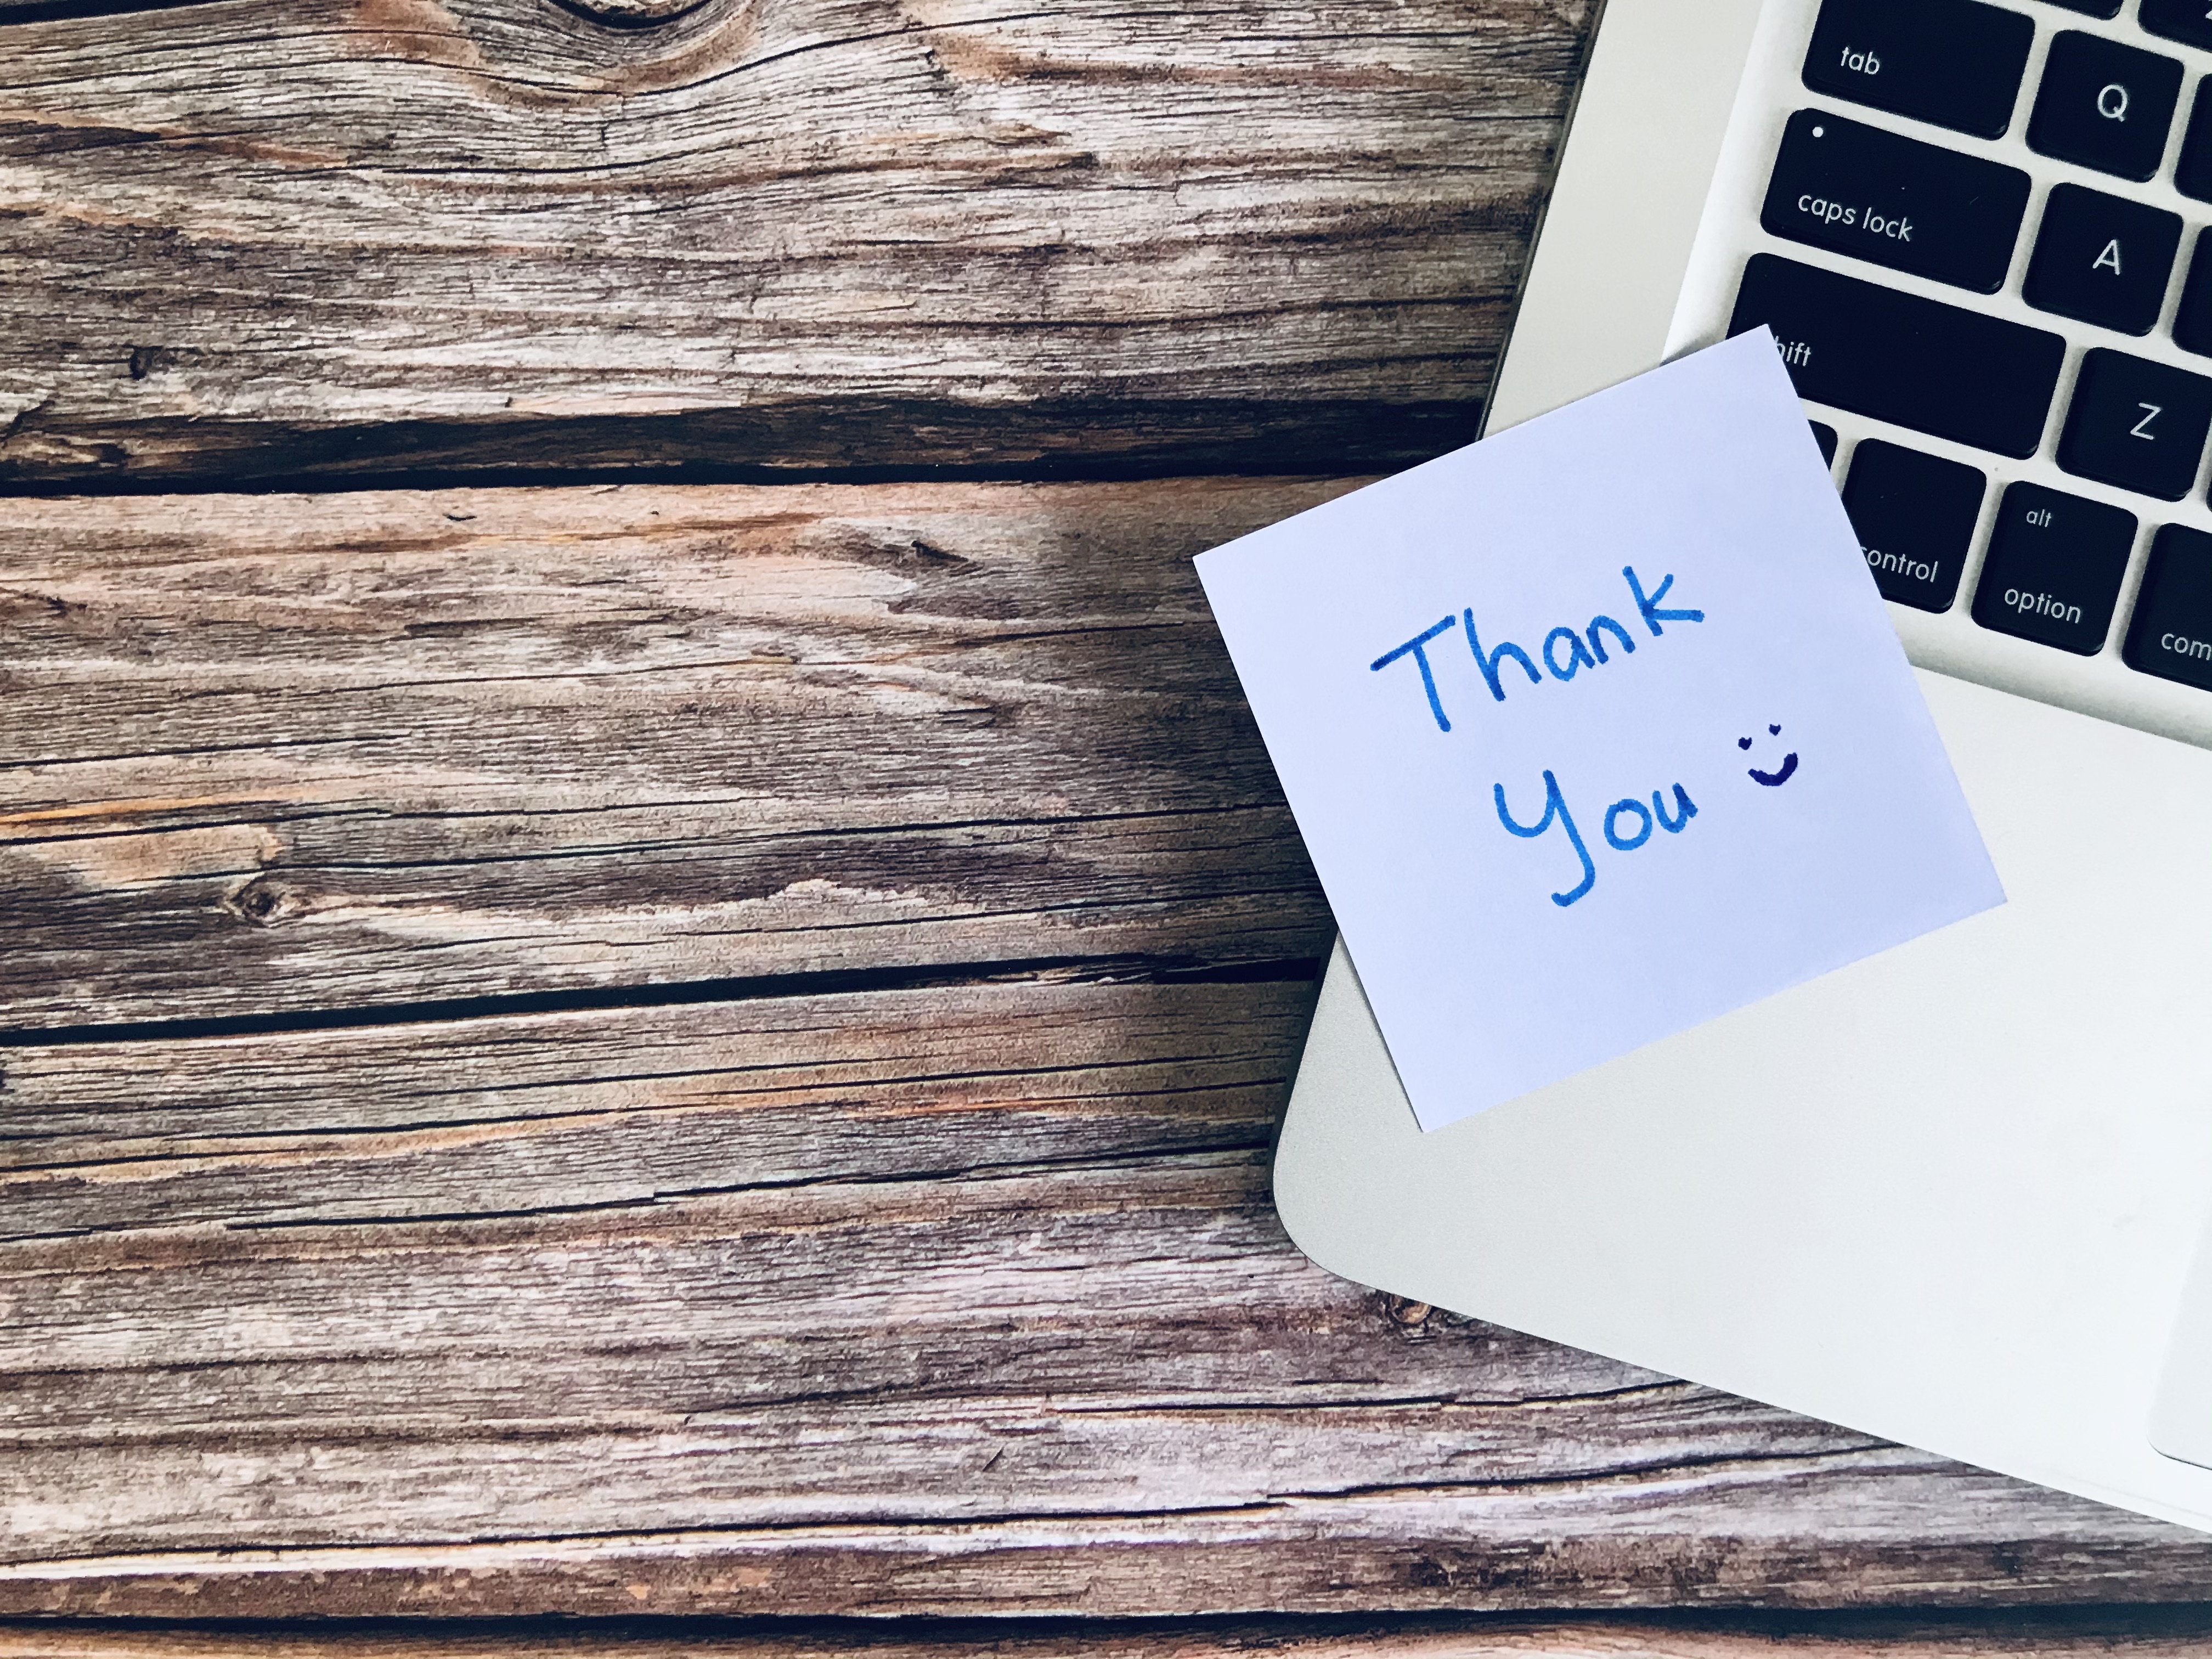 tab
Q
caps lock
A
hift
Z
control
alt
option
com
Thank
You